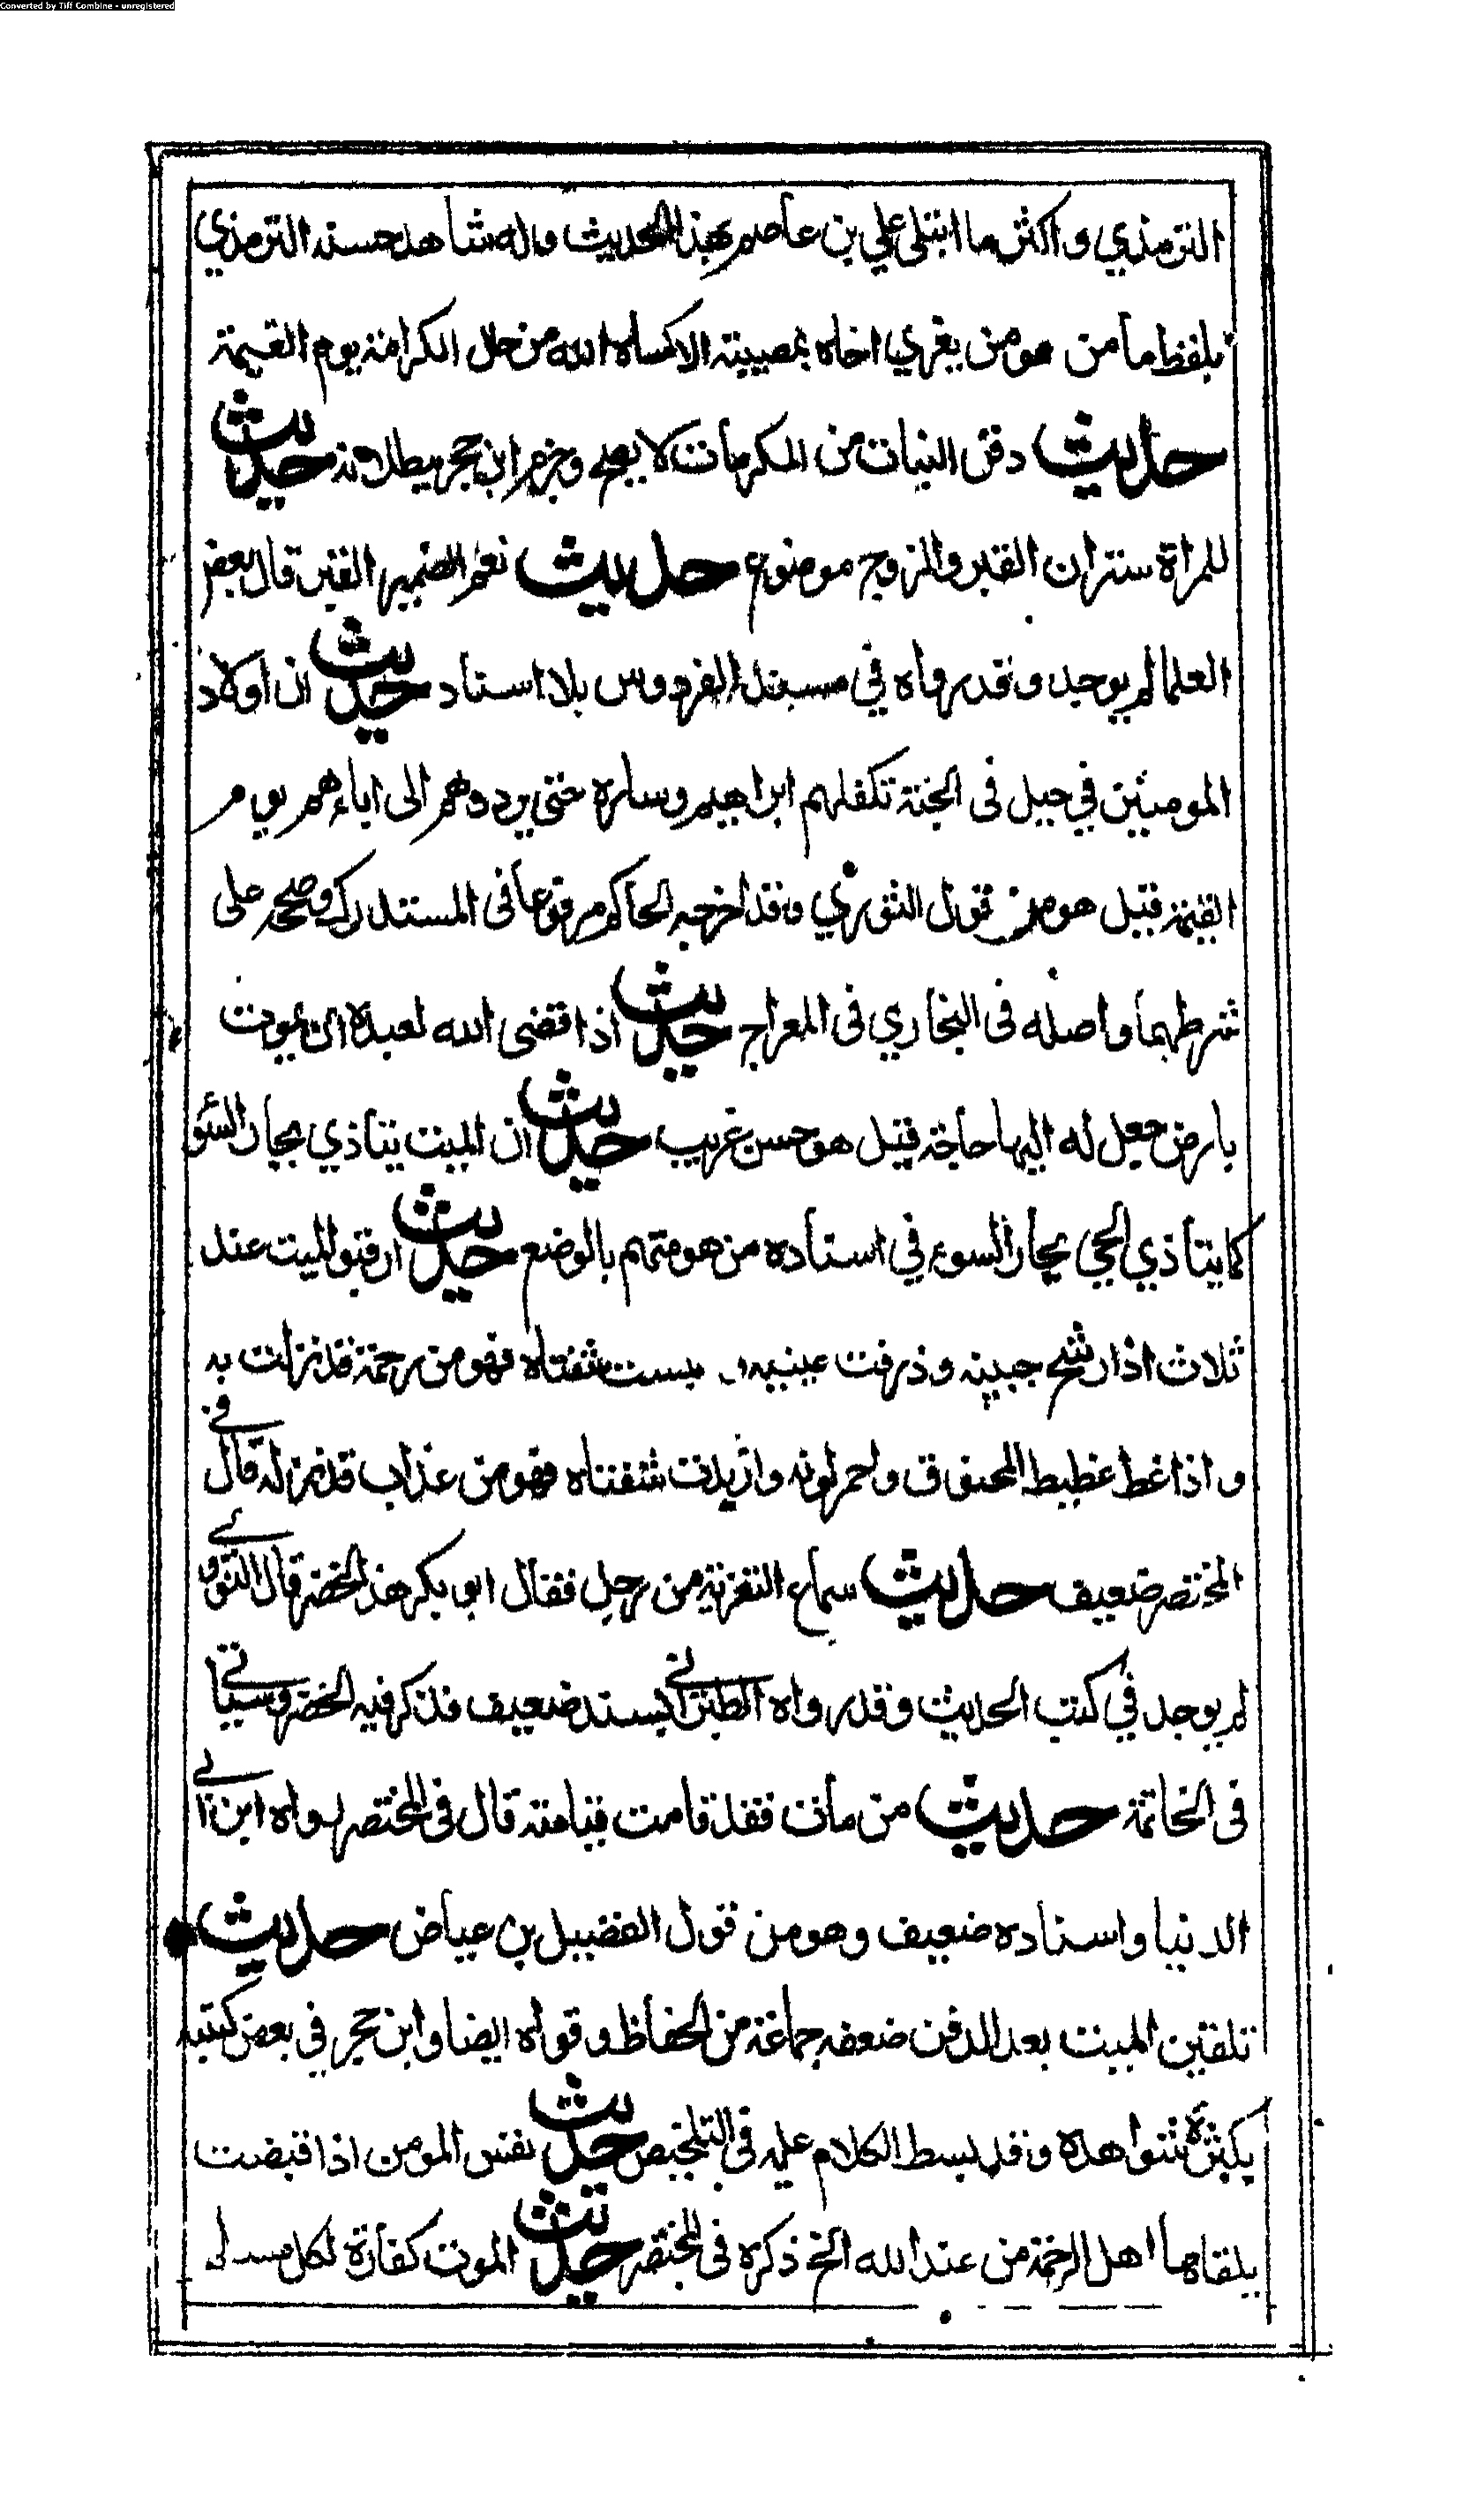 Converted by Tiff Combine - unregistered
الترمذي واكثر ما ابتلي علي بن عاصم بهذا الحديث وله شاهد حسنه الترمذي
بلفظ ما من مومن يعزي اخاه بمصيبته الا كساه الله من حلل الكرامة يوم القيمة
حديث دفن البنات من المكرمات لا يصح وجزم ابن حجر ببطلانه حديث
للمراة ستران القبر والزوج موضوع حديث نعم الصهر القبر قال بعض
العلما لم يوجد وقد رواه في مسند الفردوس بلا اسناد حديث ان اولاد
المومنين في جبل فى الجنة تكفلهم ابراهيم وسارة حتى يردوهم الى اباءهم يوم
القيمة قيل هو من قول الثوري وقد اخرجه الحاكم مرفوعا فى المستدرك وصححه على
شرطهما واصله فى البخاري فى المعراج حديث اذا قضى الله لعبده ان يموت
بارض جعل له اليها حاجة قيل هو حسن غريب حديث ان الميت يتاذي بجار السؤ
كما يتاذي الحي بجار السوء في اسناده من هو متهم بالوضع حديث ارقبو الميت عند
ثلاث اذا رشح جبينه وذرفت عينيه و يبست شفتاه فهو من رحمة قد نزلت به
واذا غط غطيط المخنوق واحمر لونه وازبدت شفتاه فهو من عذاب قد نزل له قال في
المختصر ضعيف حديث سماع التعزية من رجل فقال ابو بكر هذا الخضر قال النووي
لم يوجد في كتب الحديث وقد رواه الطبراني بسند ضعيف فذكر فيه الخضر وسياتي
فى الخاتمة حديث من مات فقد قامت قيامته قال فى المختصر رواه ابن ابي
الدنيا واسناده ضعيف وهو من قول الفضيل بن عياض حديث
تلقين الميت بعد الدفن ضعفه جماعة من الحفاظ وقواه ايضا وابن حجر في بعض كتبه
بكثرة شواهده وقد بسط الكلام عليه فى التلخيص حديث نفس المومن اذا قبضت
يلقاها اهل الرحمة من عند الله الخ ذكره فى المختصر حديث الموت كفارة لكل مسلم